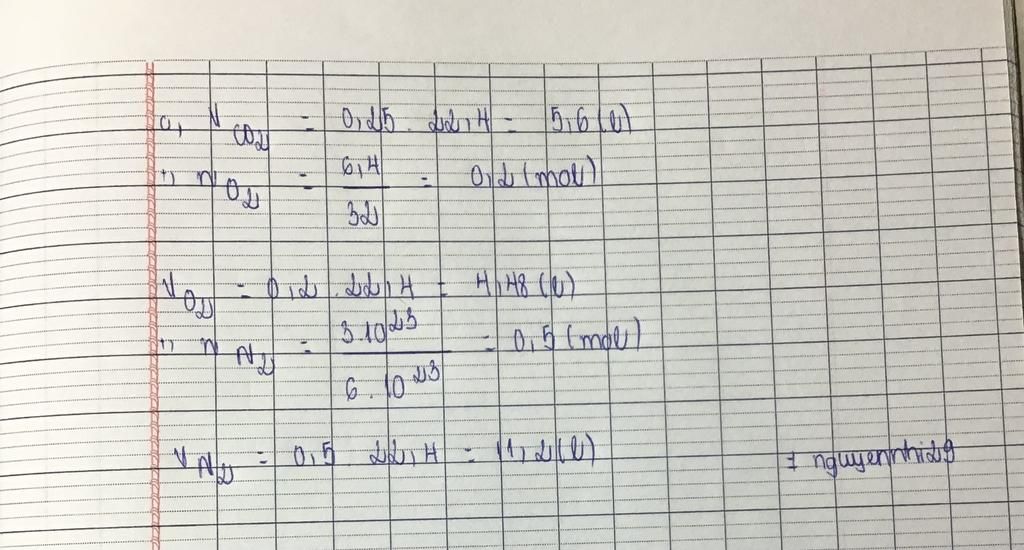 a, V CO2 = 0,25 . 22,4 = 5,6 (l)
n O2 = 6,4 / 32 = 0,2 (mol)
V O2 = 0,2 . 22,4 = 4,48 (l)
n N2 = 3.10^23 / 6.10^23 = 0,5 (mol)
V N2 = 0,5 . 22,4 = 11,2 (l)
# nguyennhi29